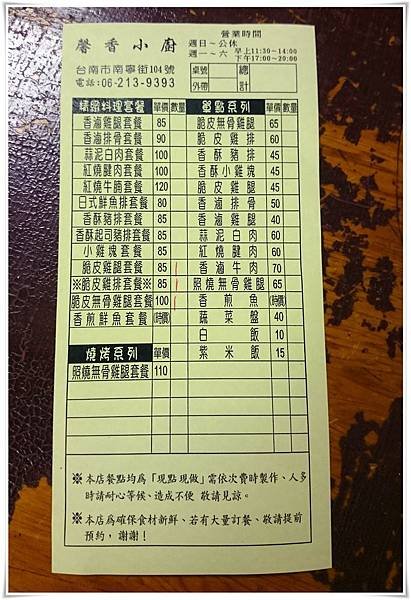 馨香小廚
營業時間
週日～公休
週一～六 早上11:30~14:00
下午17:00~20:00
台南市南寧街104號
電話:06-213-9393
桌號
外帶
總計
精緻料理套餐 單價 數量
香滷雞腿套餐 85
香滷排骨套餐 90
蒜泥白肉套餐 100
紅燒腱肉套餐 100
紅燒牛腩套餐 120
日式鮮魚排套餐 80
香酥豬排套餐 85
香酥起司豬排套餐 85
小雞塊套餐 85
脆皮雞腿套餐 85
※脆皮雞排套餐※ 85
脆皮無骨雞腿套餐 100
香煎鮮魚套餐 (時價)
燒烤系列 單價
照燒無骨雞腿套餐 110
單點系列 單價 數量
脆皮無骨雞腿 65
脆皮雞排 60
香酥豬排 45
香酥小雞塊 45
脆皮雞腿 45
香滷排骨 50
香滷雞腿 40
蒜泥白肉 60
紅燒腱肉 60
香滷牛肉 70
照燒無骨雞腿 65
香煎魚 (時價)
蔬菜盤 40
白飯 10
紫米飯 15
※本店餐點均為「現點現做」需依次費時製作、人多
時請耐心等候、造成不便 敬請見諒。
※本店為確保食材新鮮、若有大量訂餐、敬請提前
預約，謝謝！